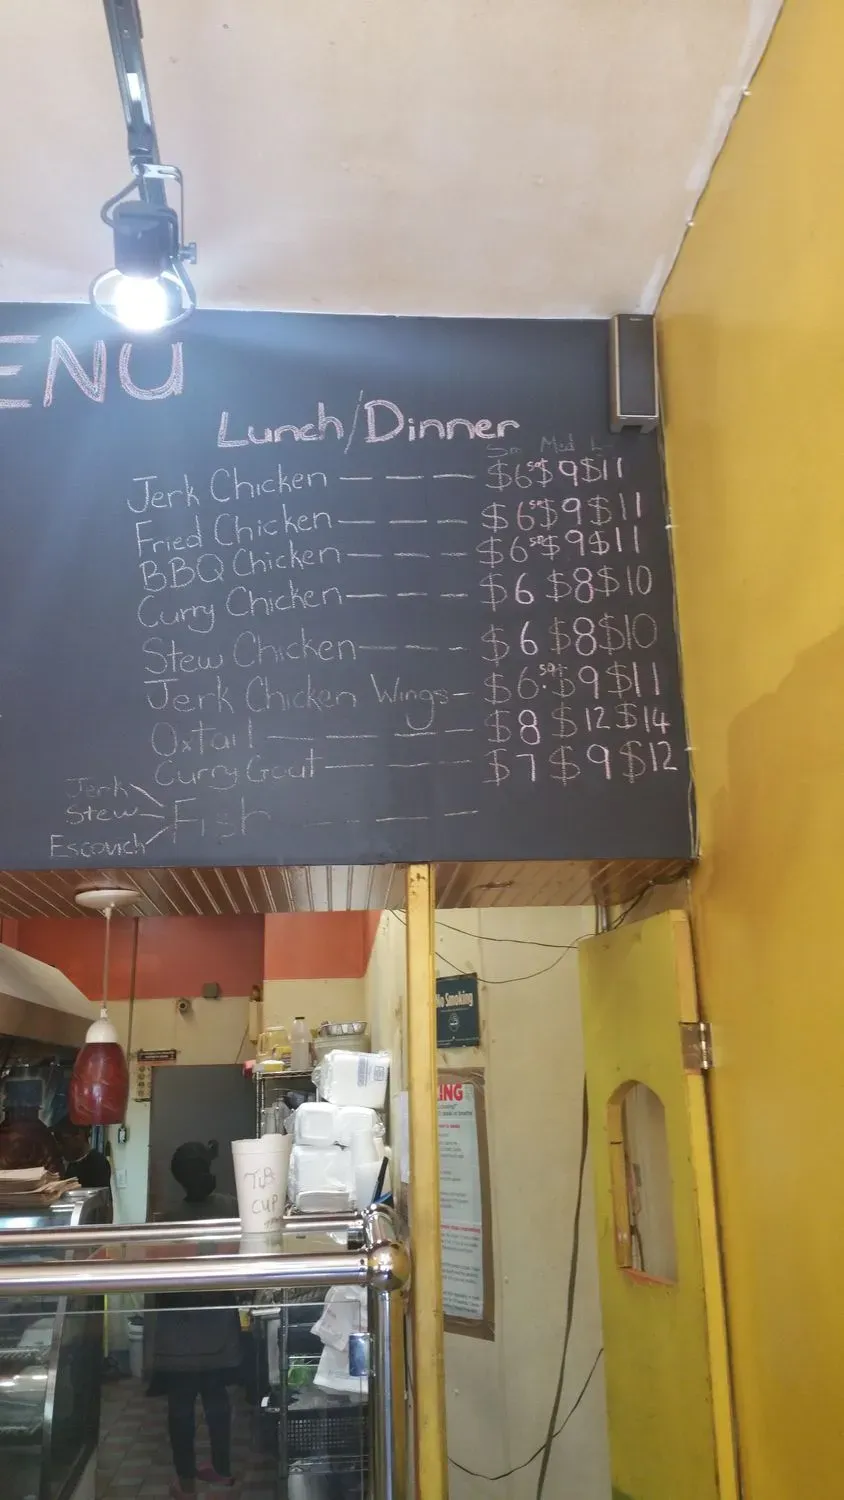 ENU
Lunch/Dinner
Sm Med L
Jerk Chicken — — — $6.50 $9 $11
Fried Chicken — — — $6.50 $9 $11
BBQ Chicken — — — $6.50 $9 $11
Curry Chicken — — — $6 $8 $10
Stew Chicken — — — $6 $8 $10
Jerk Chicken Wings — $6.50 $9 $11
Oxtail — — — $8 $12 $14
Curry Goat — — — $7 $9 $12
Jerk
Stew Fish — — —
Escovich
No Smoking
ING
TIPS
CUP